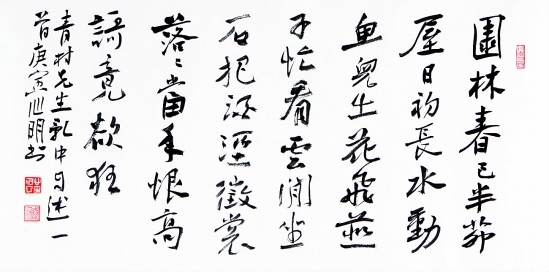 園林春已半茆
屋日初長水動
魚兒出花飛燕
子忙看雲閒坐
石犯徵裳
落落當年恨高
謌竟欲狂
青村先生乱中自述一
首庚寅明书